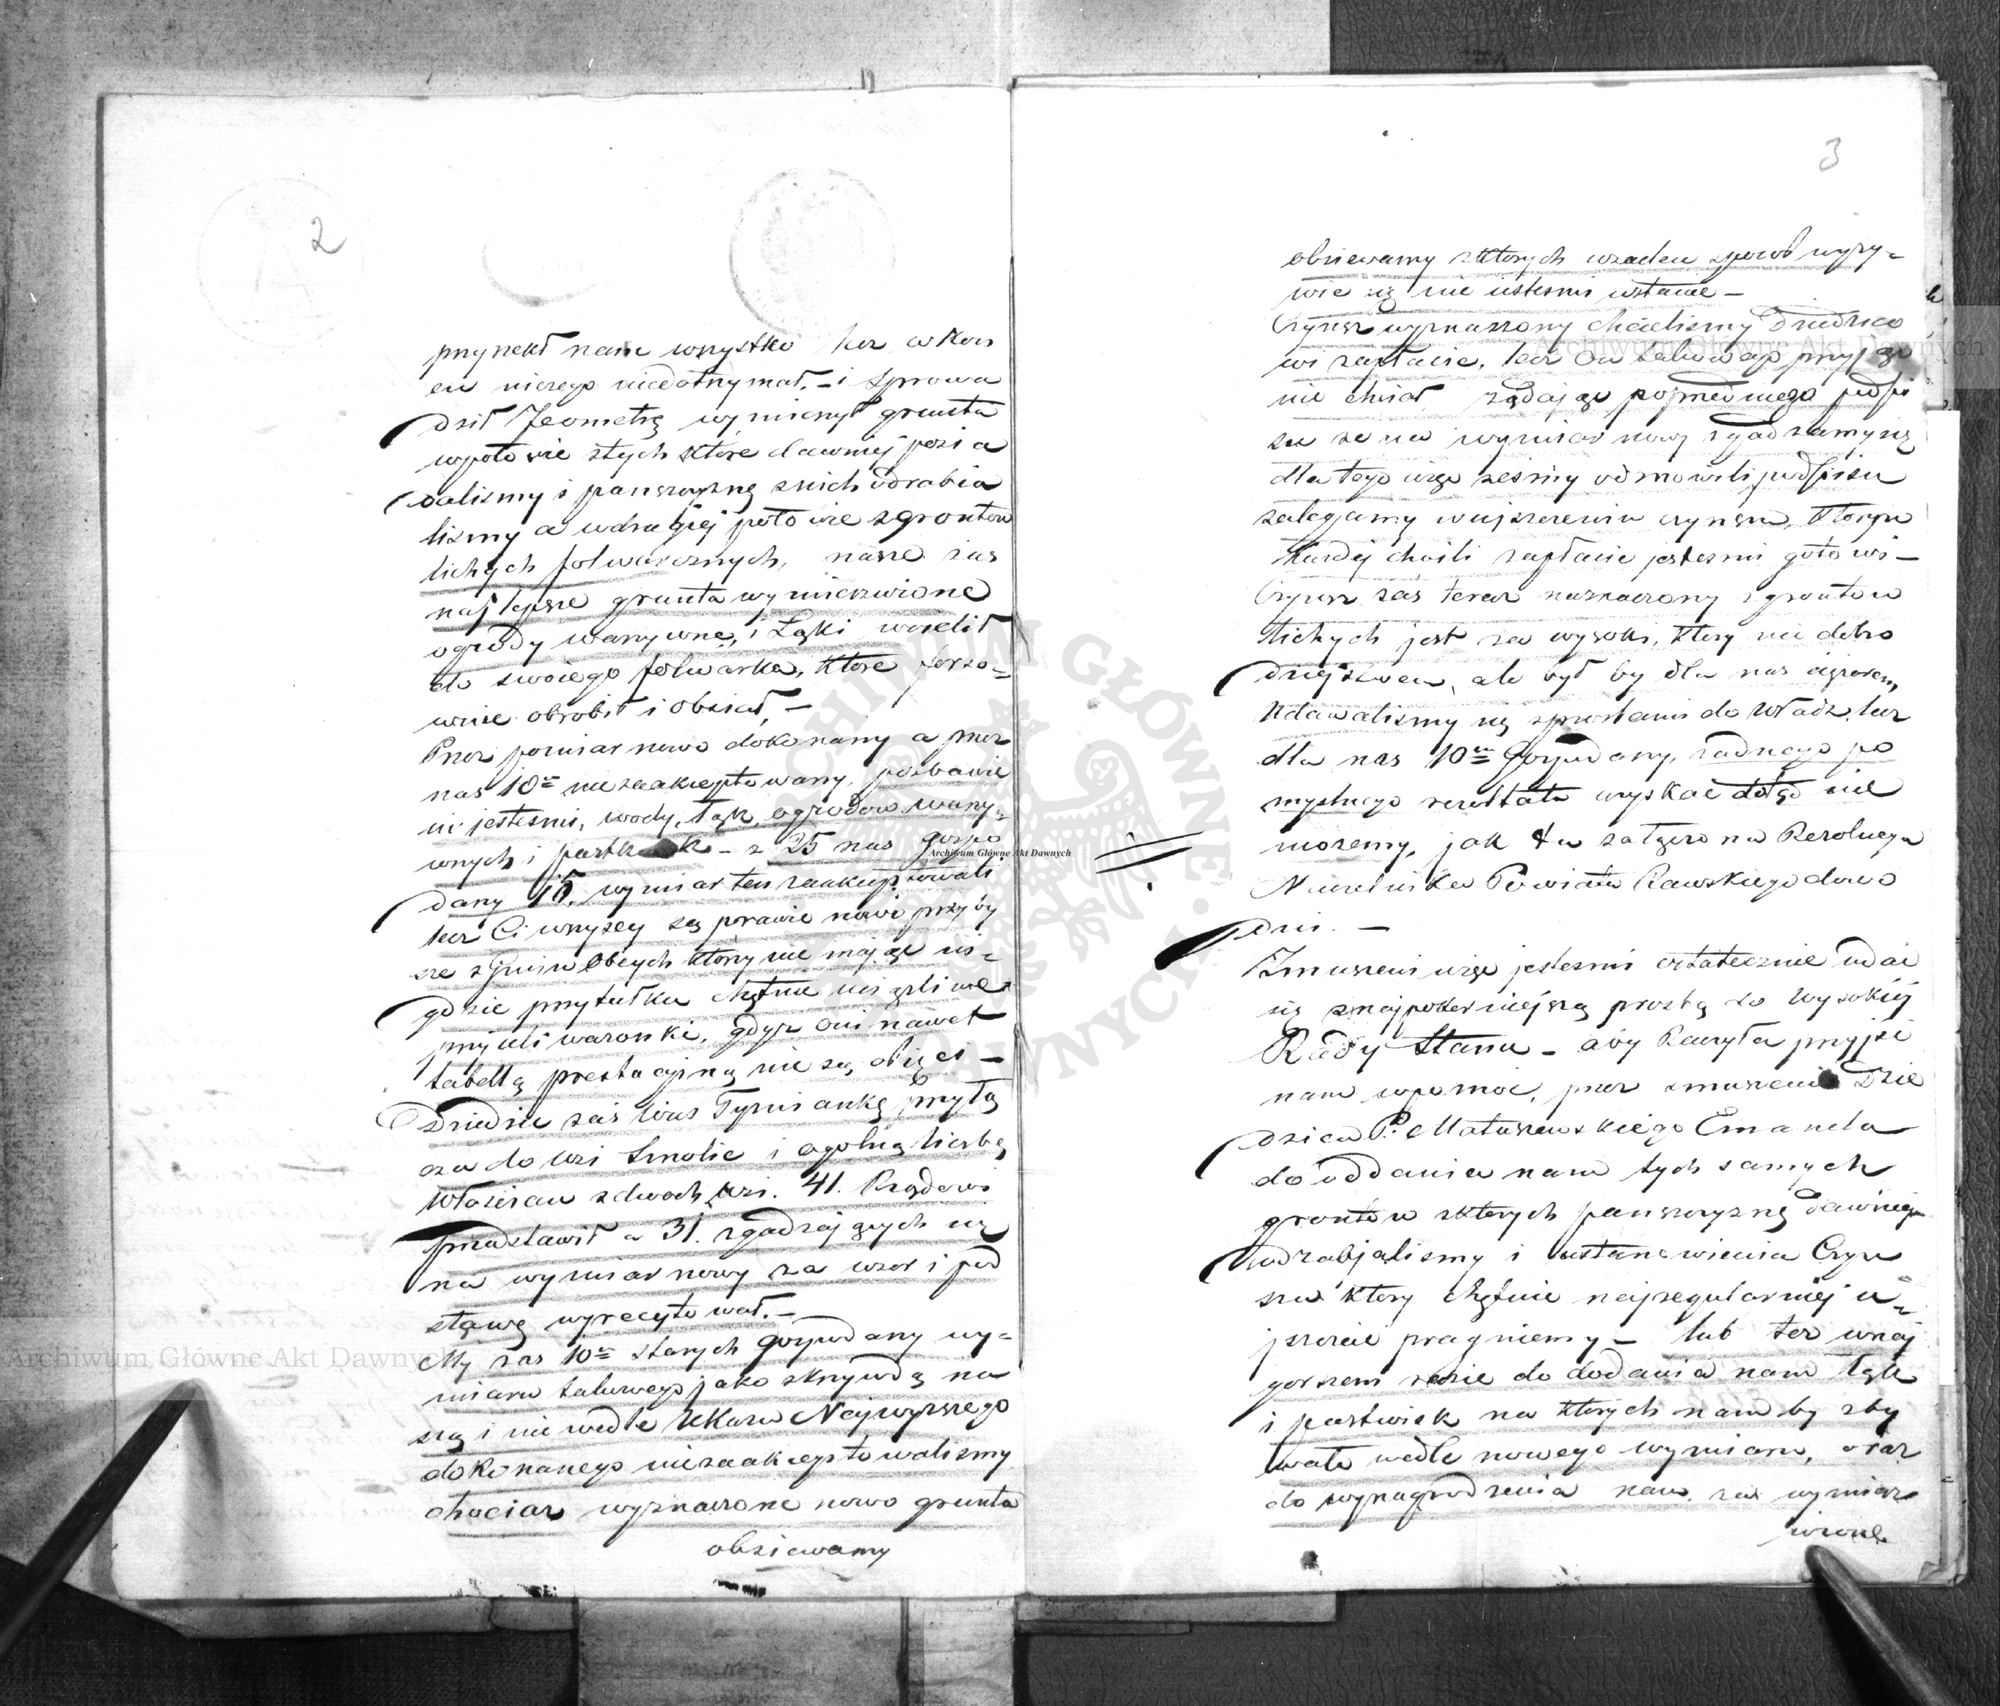 2
przyrzekł nam wszystko lecz w koń
cu niczego niedotrzymał. – i Sprowa
dził Jeometrę wymierzył grunta
wpołowie ztych które dawniej posia
daliśmy i pańszczyznę znich odrabia
liśmy a wdrugiej połowie zgrontów
lichych folwarcznych, nasze zaś
najlepsze grunta wymierzwione
ogrody warzywne, i Łąki wcielił
do swoiego folwarku, które forso=
wnie obrobił i obsiał. –
Przez pomiar nowo dokonany a przez
nas 10ciu niezaakceptowany, pozbawie
ni jesteśmi, wody, łąk, ogrodów warzy=
wnych i pastwisk – z 25 nas gospo
darzy 15. wymiar ten zaakceptowali
lecz Ci wszyscy są prawie nowo przyby
sze z Gmin Obcych który nie mając ni=
gdzie przytułku chętnie uciążliwe
przyieli waronki, gdyż oni nawet
tabellą prestacyjną nie są obięci –
Dziedzic zaś wieś Tymiankę przyłą
cza do wsi Smolic i ogolną liczbę
Włościan zdwoch wsi. 41. Rządowi
przedstawił a 31. zgadzających się
na wymiar nowy za wzor i pod
stawę wyrecytował. –
My zaś 10ciu starych Gospodarzy wy=
miaru takowego jako skrzywdą na
szą i nie wedle Ukazu Najwyższego
dokonanego niezaakceptowaliśmy
chociaż wyznaczone nowo grunta
obsiewamy
3
obsiewamy zktórych wżaden sposob wyży=
wic się nie iesteśmi wstanie –
Czynsz wyznaczony chcieliśmy Dziedzico
wi zapłacić, lecz On takowego przyjąć
nie chciał żądając poprzedniego podpi
su że na wymiar nowy zgadzamy się
dla tego więc żeśmy odmowili podpisu
zalegamy wuiszczeniu czynszu, który w
każdej chwili zapłacić jesteśmi gotowi –
Czynsz zaś teraz naznaczony zgrontów
lichych jest za wysoki, który nie dobro
dziejstwem, ale był by dla nas ciężarem,
Udawaliśmy się zprośbami do Władz, lecz
dla nas 10ciu Gospodarzy, żadnego po
myślnego rezultatu uzyskać dotąd nie
możemy, jak tu załączona Rezolucya
Naczelnika Powiatu Rawskiego dowo
dzi. –
Zmuszeni więc jesteśmi ostatecznie udać
się znajpokorniejszą prośbą do Wysokiej
Rady Stanu – aby Raczyła przyjść
nam wpomoc, przez zmuszenie Dzie
dzica P. Matuszewskiego Emanela
do oddania nam tych samych
grontów zktorych pańszczyznę dawniej
odrabjaliśmy i ustanowienia Czyn
szu który chętnie najregularniej u=
iszczać pragniemy – lub też wnaj
gorszem razie do dodania nam łąk
i pastwisk na których nam by zby
wało wedle nowego wymiaru, oraz
do wynagrodzenia nam za wymierz
wione
Archiwum Główne Akt Dawnych
Archiwum Główne Akt Dawnych
Archiwum Główne Akt Dawnych
ARCHIWUM GŁÓWNE AKT DAWNYCH